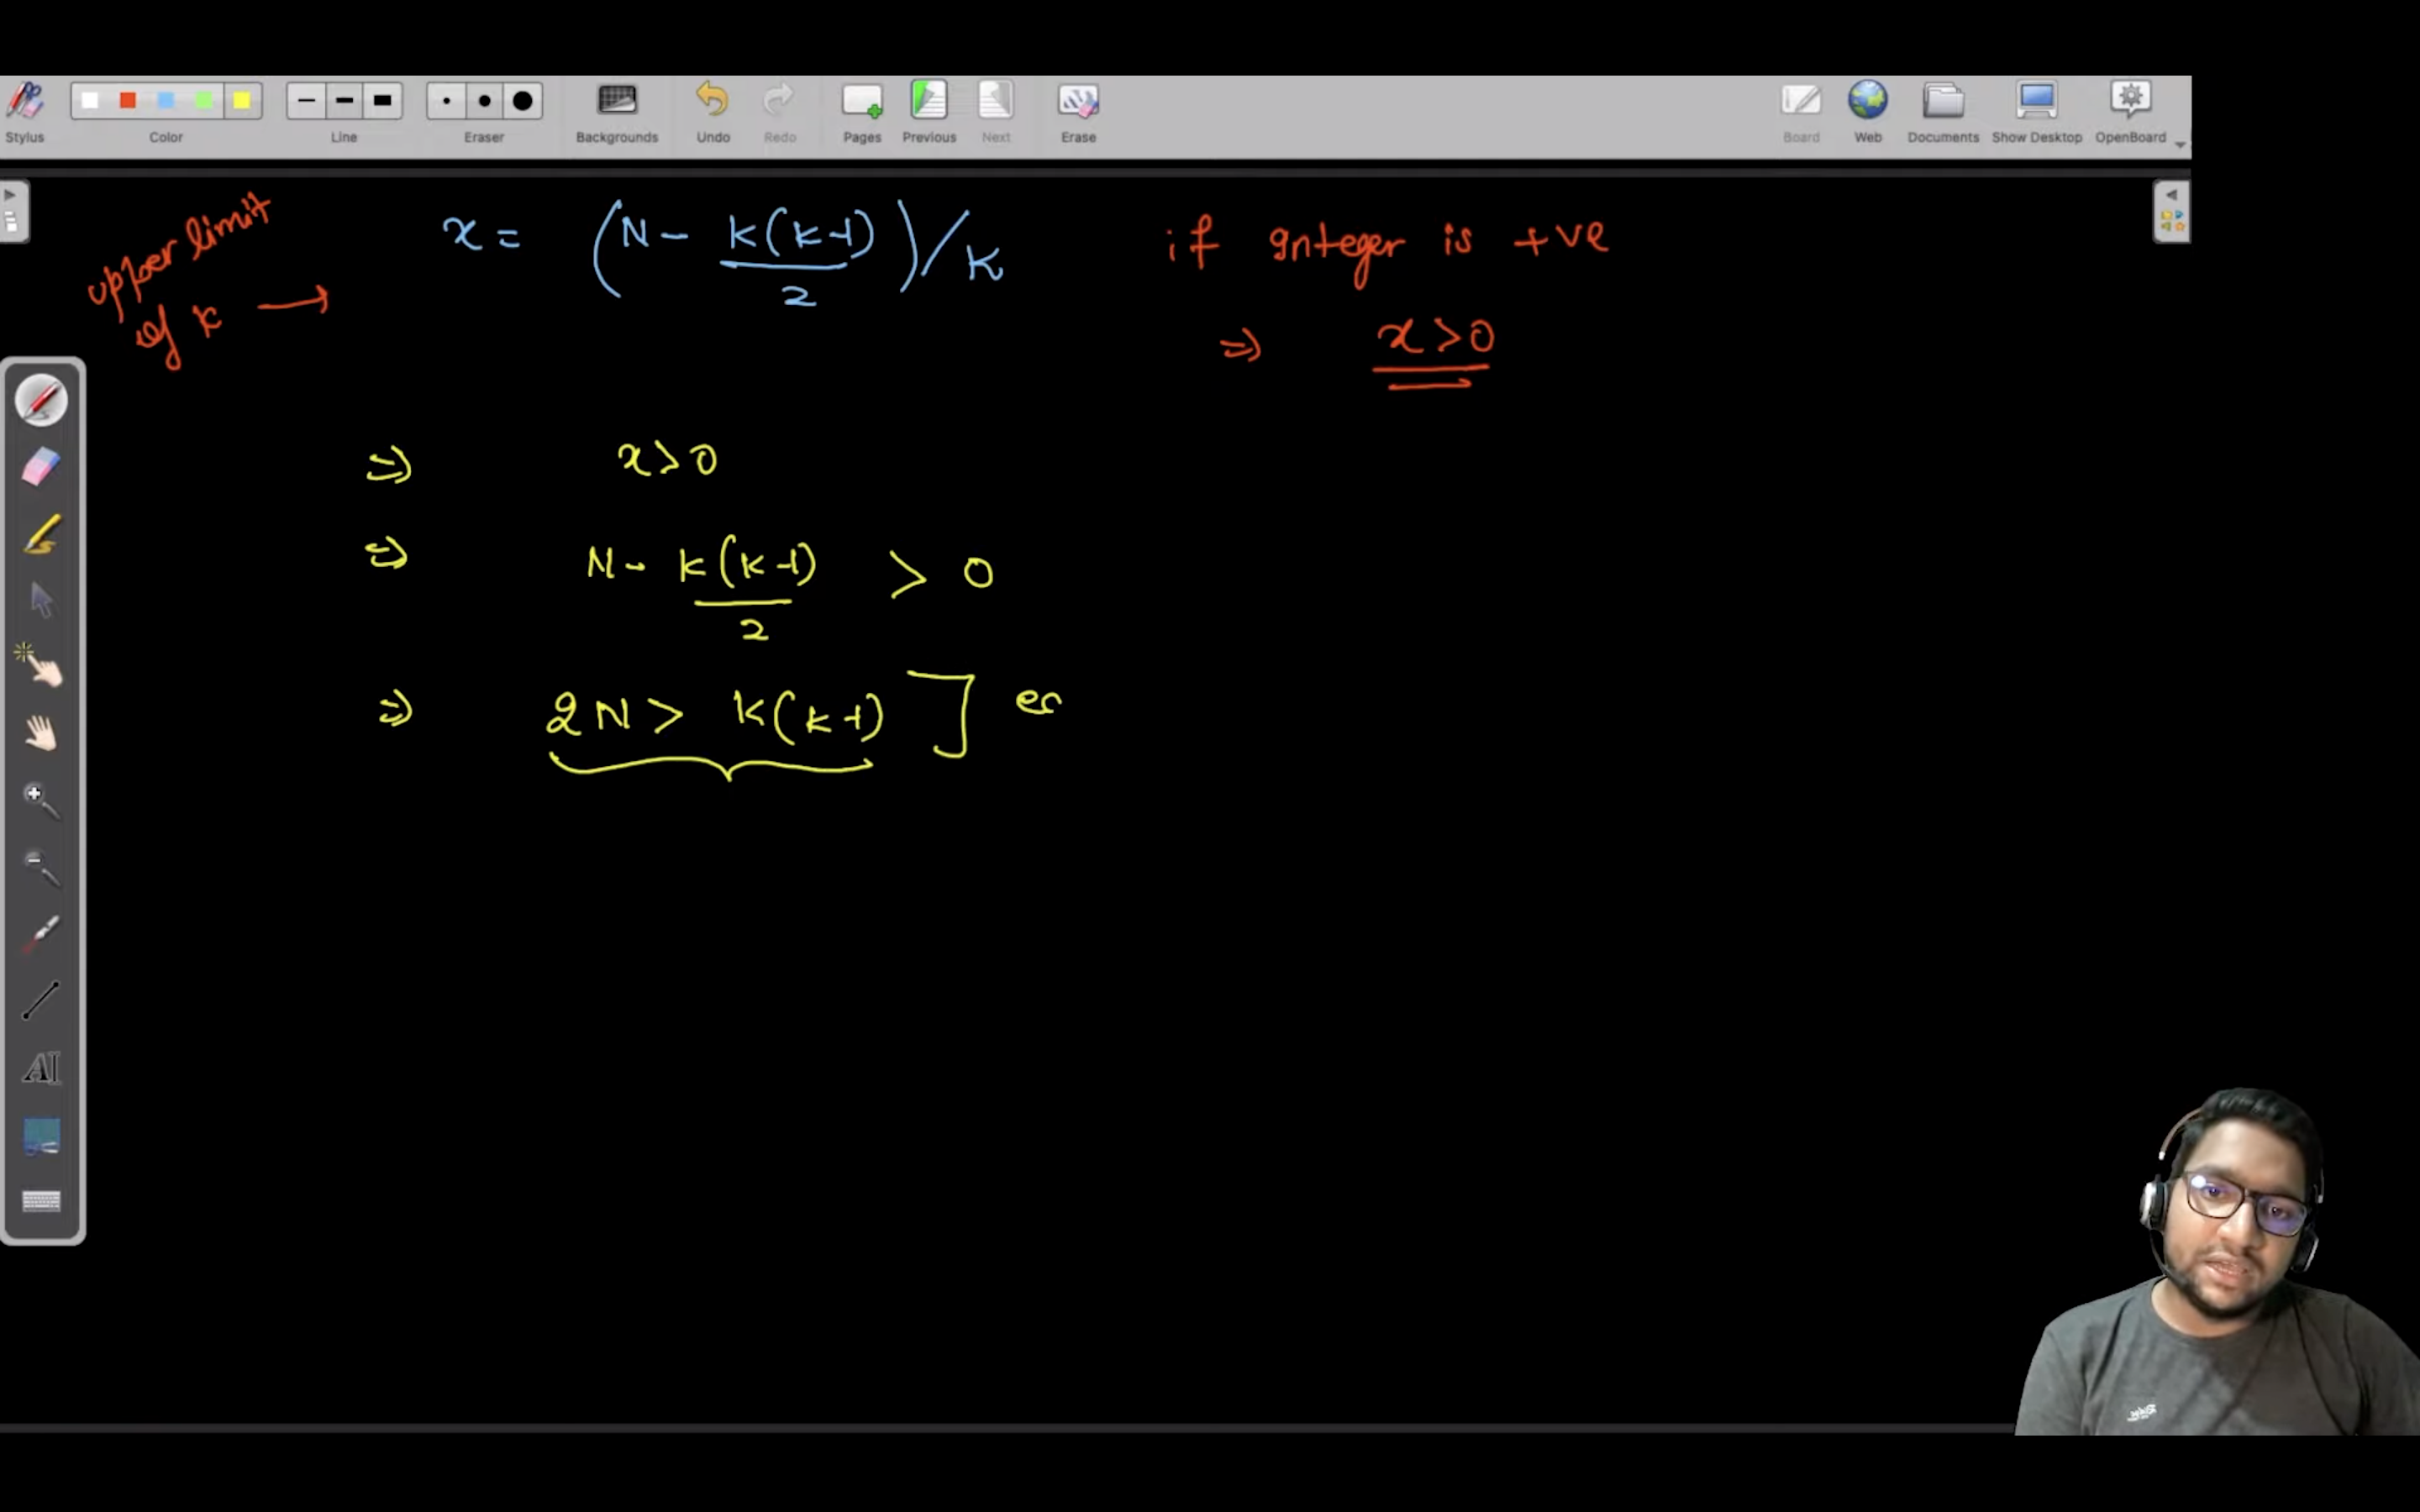 Stylus Color Line Eraser Backgrounds Undo Redo Pages Previous Next Erase Board Web Documents Show Desktop OpenBoard
upper limit
of k →
x = (N - k(k-1)/2)/k
if integer is +ve
⇒ x > 0
⇒ x > 0
⇒ N - k(k-1)/2 > 0
⇒ 2N > k(k-1) ] eq
AI